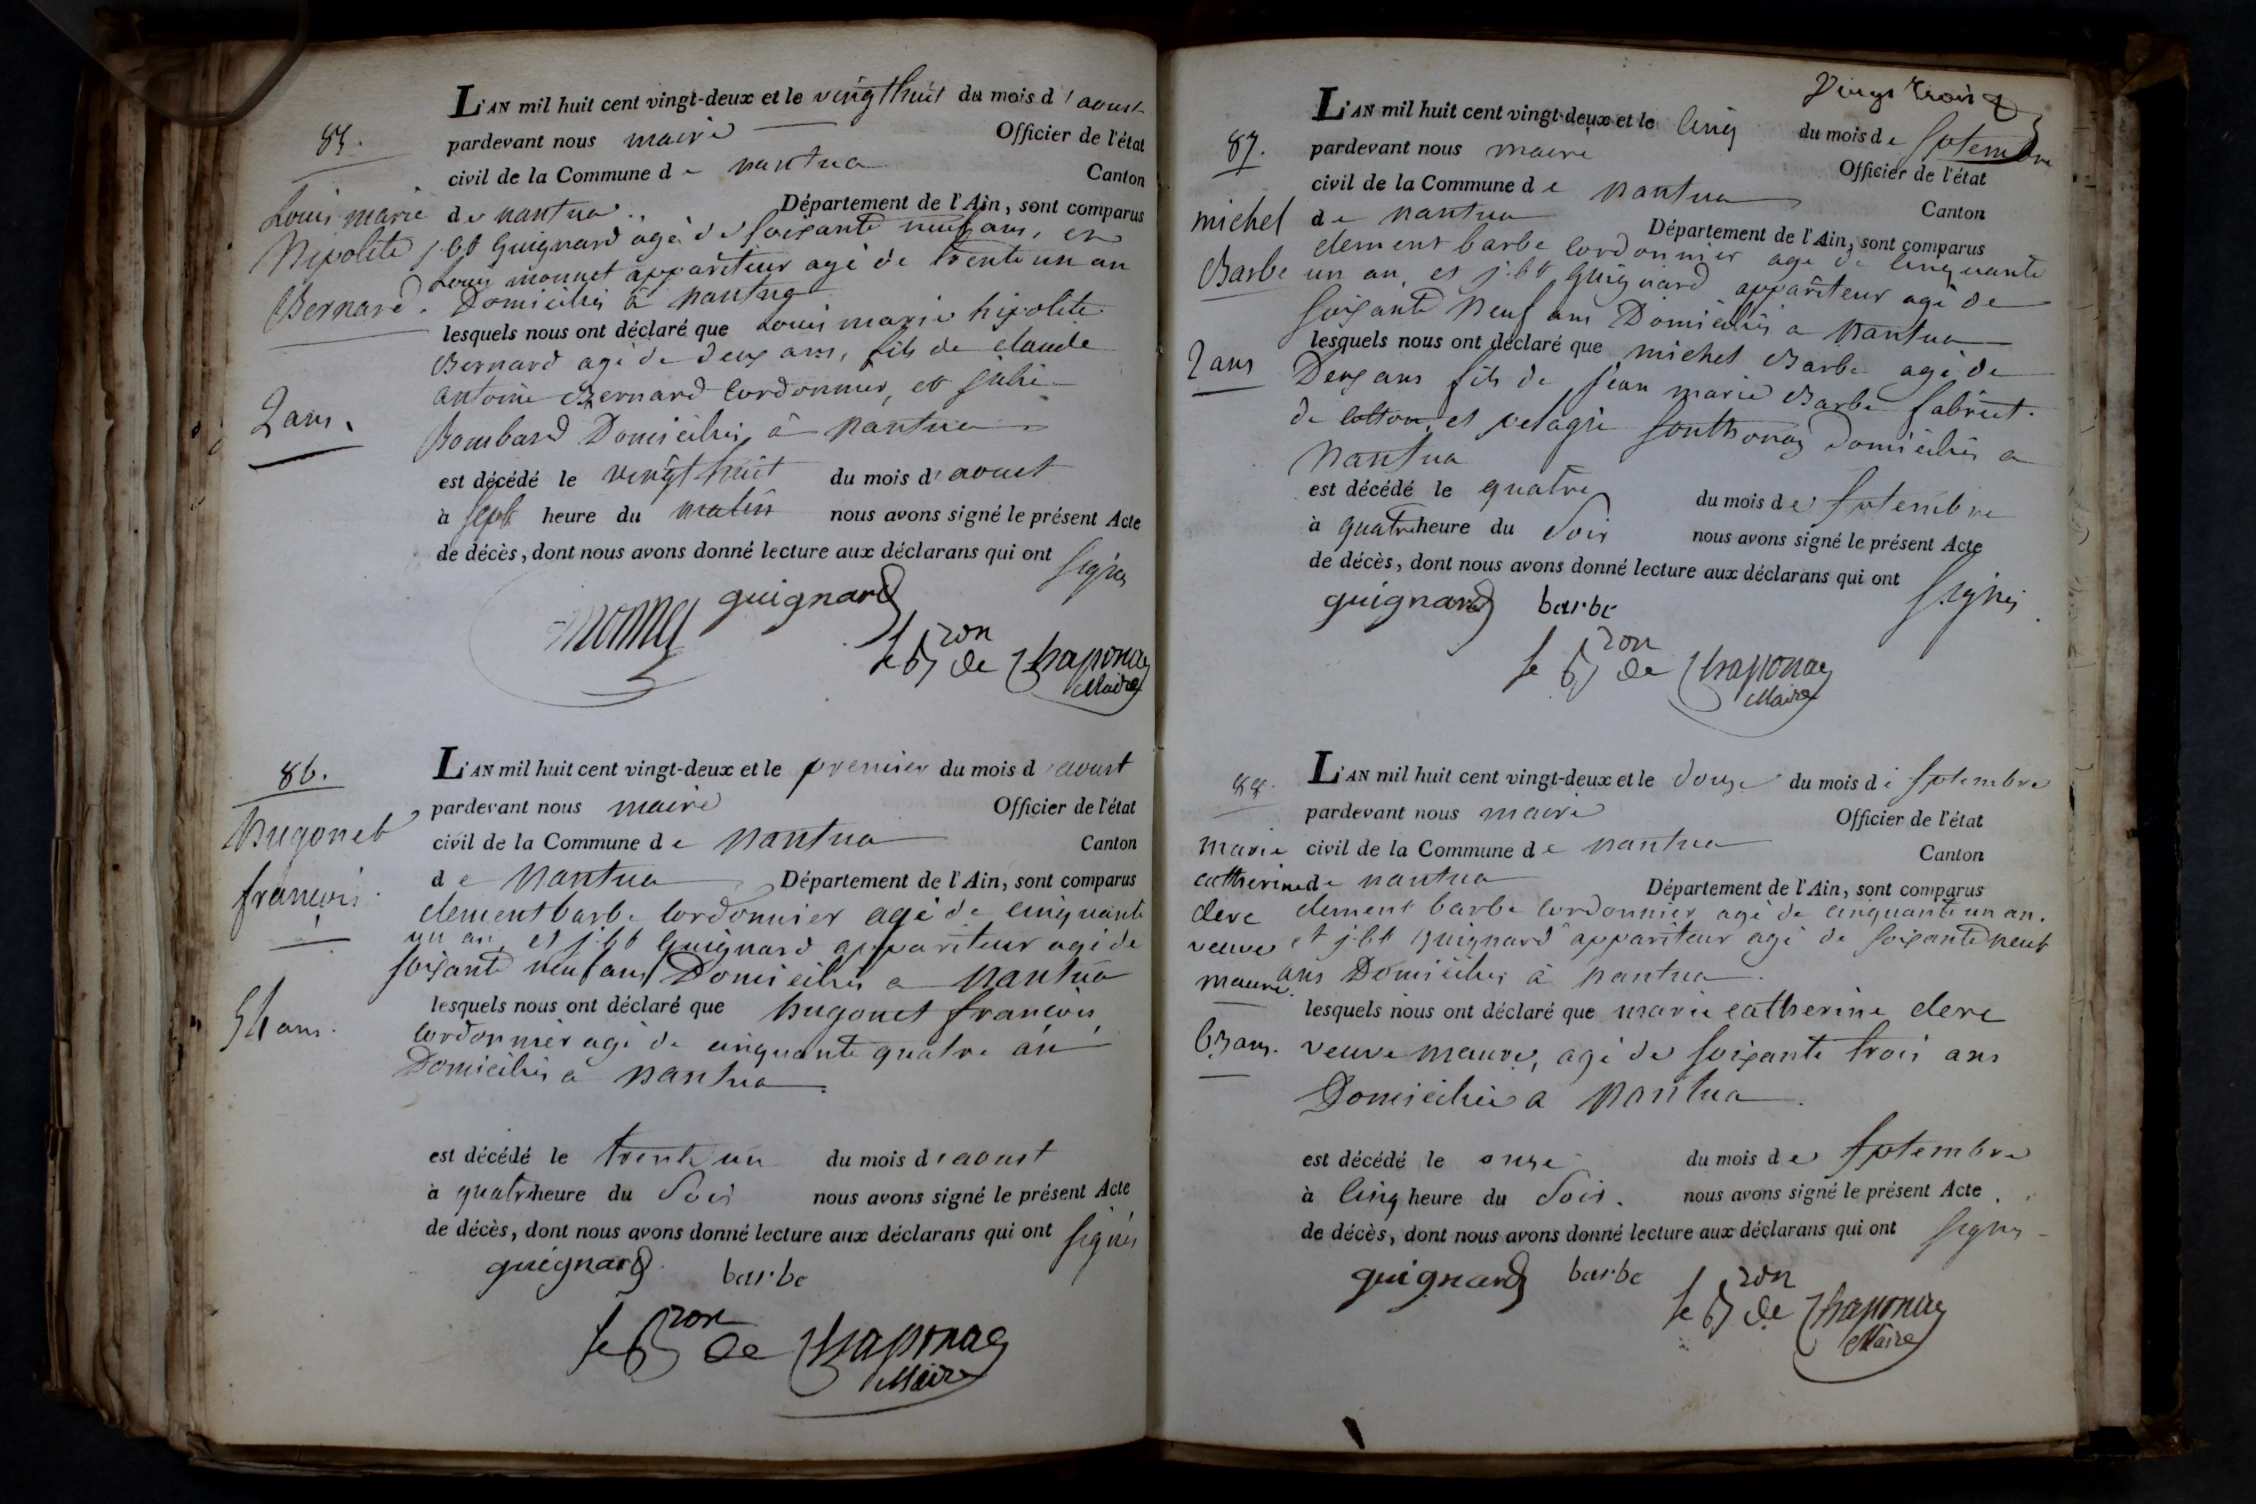 85.
Louis marie
hipolite
Bernard.
2 ans.
L'AN mil huit cent vingt-deux et le vingt huit du mois d'aoust
pardevant nous maire Officier de l'état
civil de la Commune de nantua Canton
de nantua Département de l'Ain, sont comparus
j.bt Guignard agé de soixante neuf ans, et
Louis monnet appariteur agé de trente un an
Domiciliés à nantua
lesquels nous ont déclaré que Louis marie hipolite
Bernard agé de deux ans, fils de claude
antoine Bernard Cordonnier, et julie
Bombard Domiciliés à nantua
est décédé le vingt huit du mois d'aoust
à sept heure du matin nous avons signé le présent Acte
de décès, dont nous avons donné lecture aux déclarans qui ont signés
monnet guignard
le Bron de Chaponay
Maire
86.
hugonet
françois
54 ans.
L'AN mil huit cent vingt-deux et le premier du mois d'aoust
pardevant nous maire Officier de l'état
civil de la Commune de nantua Canton
de nantua Département de l'Ain, sont comparus
clement barbe Cordonnier agé de cinquante
un an, et j.bt Guignard appariteur agé de
soixante neuf ans Domiciliés a nantua
lesquels nous ont déclaré que hugonet françois,
Cordonnier agé de cinquante quatre an
Domiciliés a nantua
est décédé le trente un du mois d'aoust
à quatre heure du Soir nous avons signé le présent Acte
de décès, dont nous avons donné lecture aux déclarans qui ont signés
guignard barbe
le Bron de Chaponay
Maire
Vingt trois
87.
michel
Barbe
2 ans
L'AN mil huit cent vingt-deux et le Cinq du mois de Septembre
pardevant nous maire Officier de l'état
civil de la Commune de nantua Canton
de nantua Département de l'Ain, sont comparus
clement barbe Cordonnier agé de Cinquante
un an, et j.bt Guignard appariteur agé de
soixante Neuf ans Domiciliés a nantua
lesquels nous ont déclaré que michel Barbe agé de
Deux ans fils de jean marie Barbe fabrict.
de cotton, et pelagie Southonay domiciliés a
nantua
est décédé le quatre du mois de Septembre
à quatre heure du Soir nous avons signé le présent Acte
de décès, dont nous avons donné lecture aux déclarans qui ont signés
guignard barbe
le Bron de Chaponay
Maire
88.
marie
catherine
clerc
veuve
maure.
63 ans.
L'AN mil huit cent vingt-deux et le douze du mois de Septembre
pardevant nous maire Officier de l'état
civil de la Commune de nantua Canton
de nantua Département de l'Ain, sont comparus
clement barbe Cordonnier agé de cinquante un an.
et j.bt Guignard appariteur agé de soixante neuf
ans Domiciliés à nantua
lesquels nous ont déclaré que marie catherine clerc
veuve maure, agé de soixante trois ans
Domiciliée a nantua.
est décédé le onze du mois de Septembre
à Cinq heure du Soir. nous avons signé le présent Acte
de décès, dont nous avons donné lecture aux déclarans qui ont signés
guignard barbe
le Bron de Chaponay
Maire